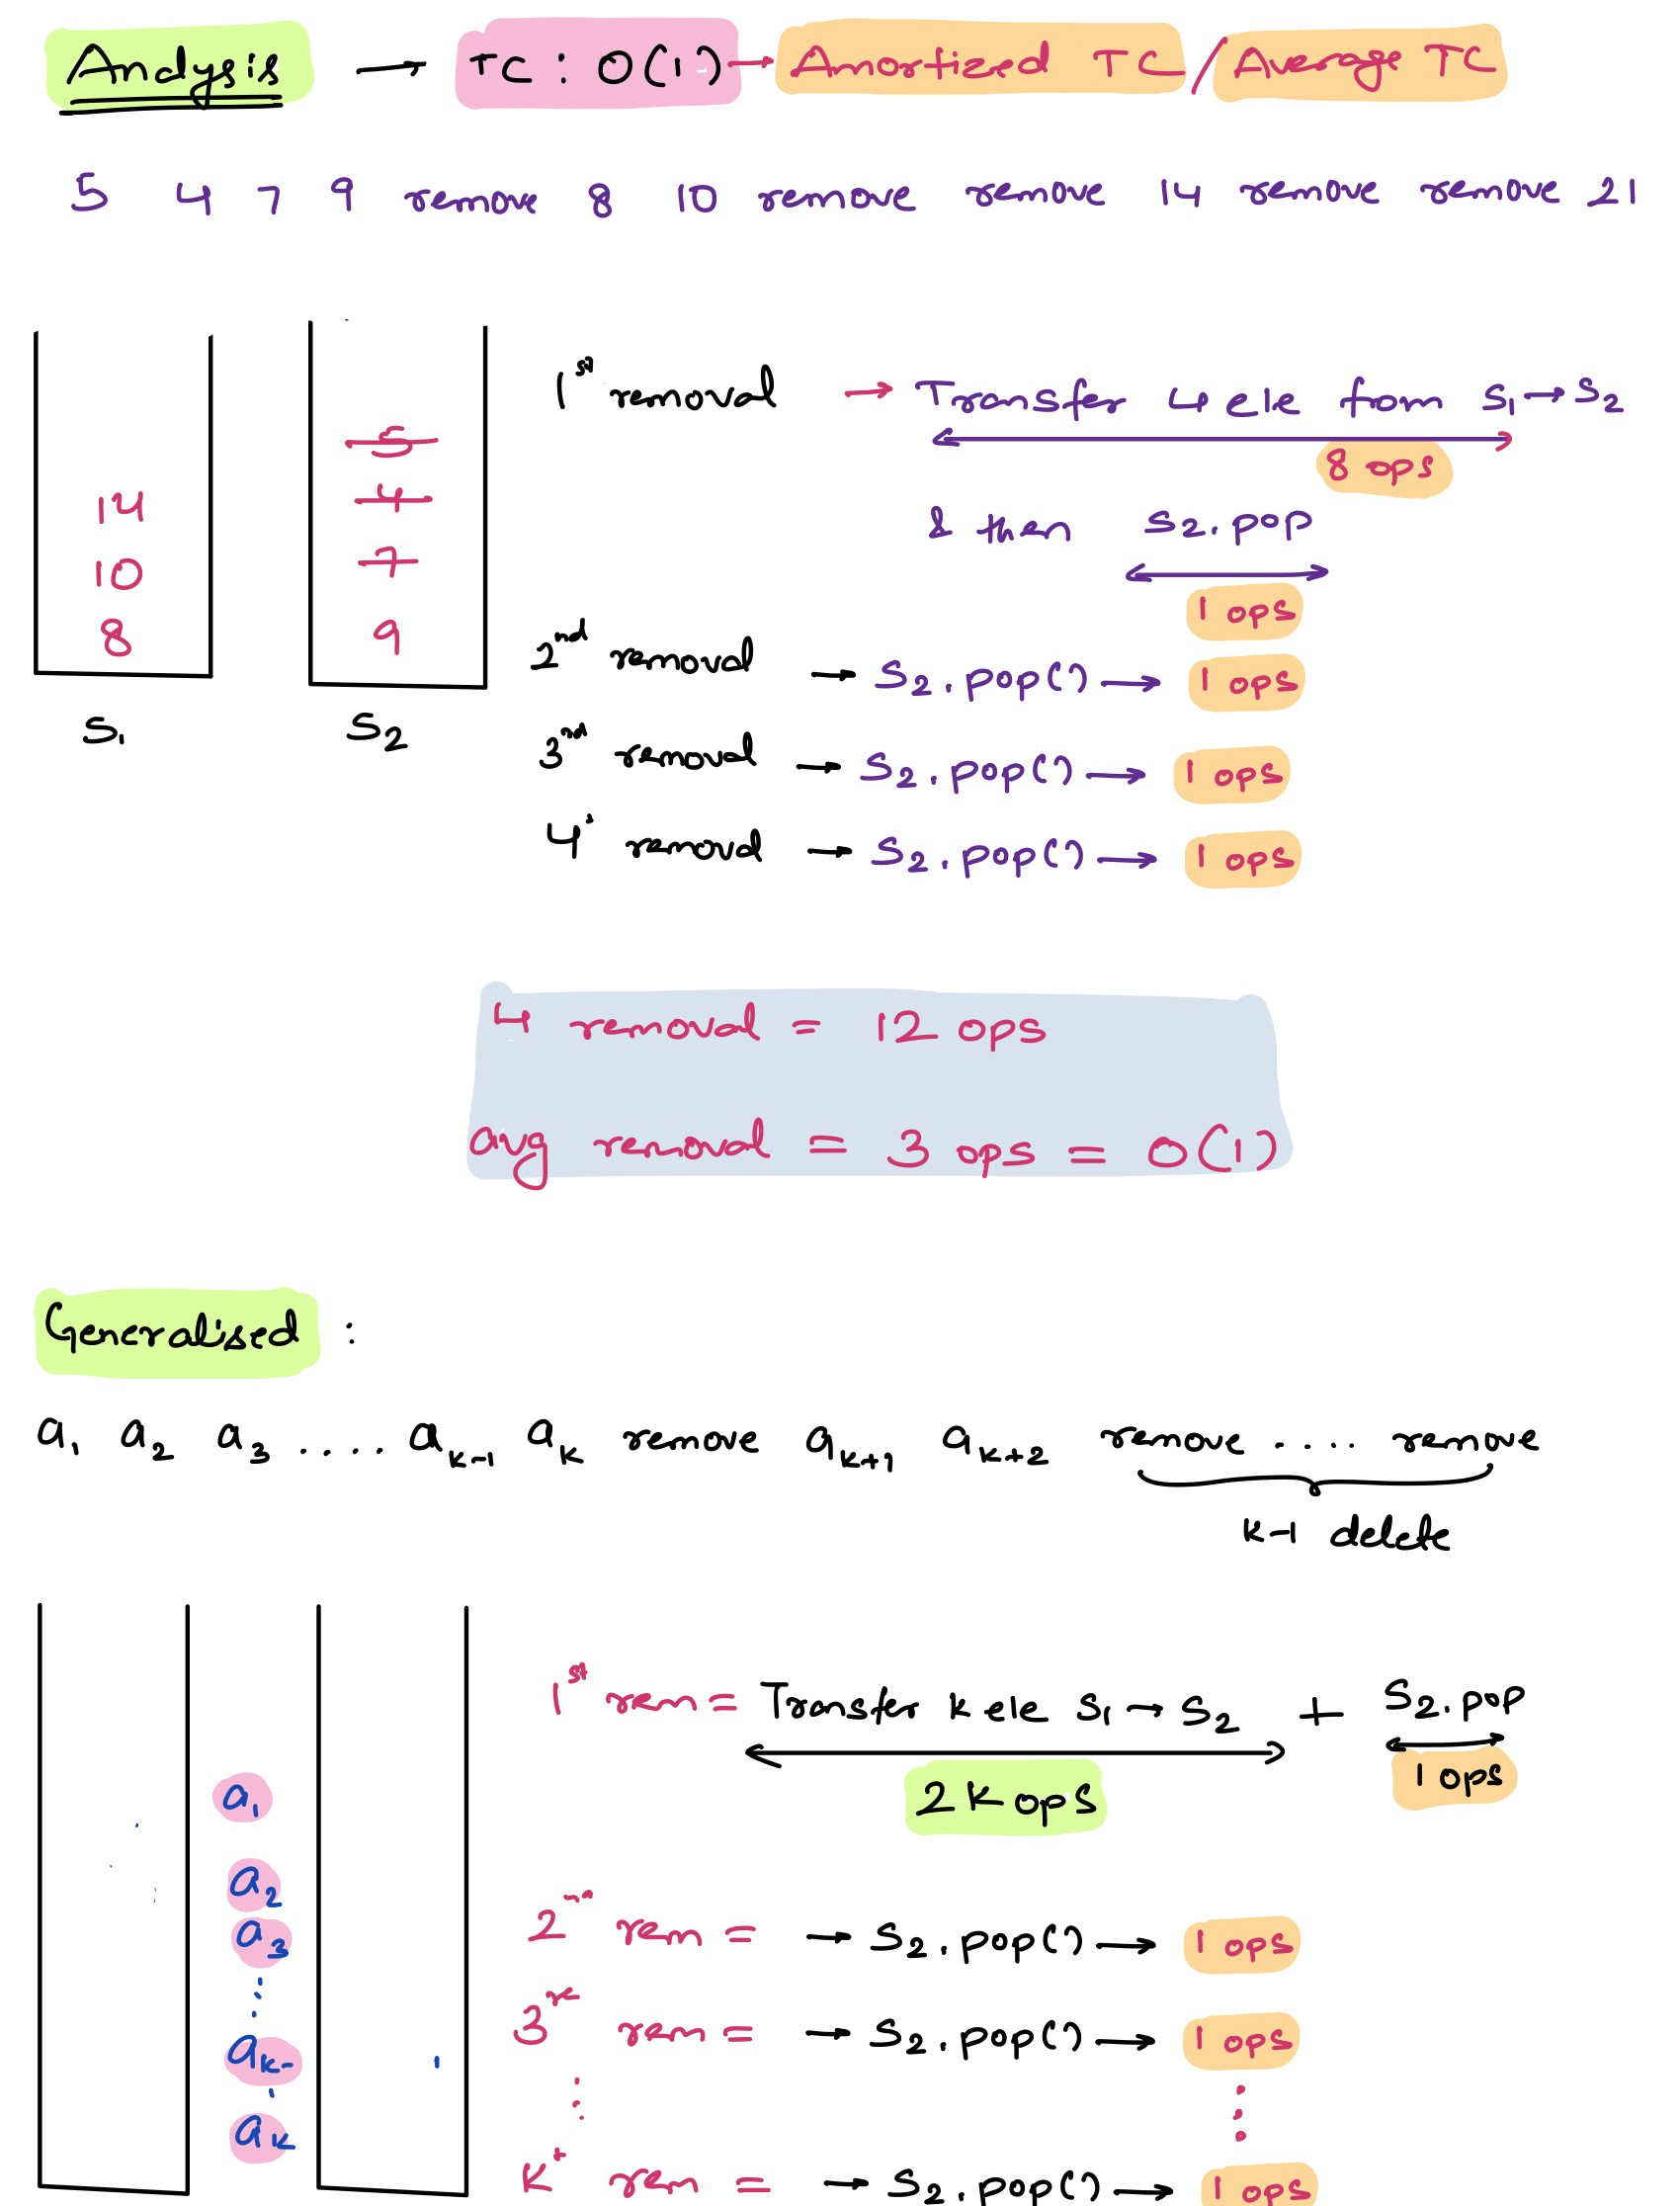 Analysis → TC : O(1) → Amortized TC / Average TC
5 4 7 9 remove 8 10 remove remove 14 remove remove 21
1st removal → Transfer 4 ele from S1 → S2
8 ops
& then S2.pop
1 ops
5
4
7
9
14
10
8
S1 S2
2nd removal → S2.pop() → 1 ops
3nd removal → S2.pop() → 1 ops
4 removal → S2.pop() → 1 ops
4 removal = 12 ops
avg removal = 3 ops = O(1)
Generalised :
a1 a2 a3 .... ak-1 ak remove ak+1 ak+2 remove .... remove
k-1 delete
1st rem = Transfer k ele S1 → S2 + S2.pop
2k ops 1 ops
a1
a2
a3
⋮
ak-
ak
2 rem = → S2.pop() → 1 ops
3 rem = → S2.pop() → 1 ops
⋮ ⋮
k rem = → S2.pop() → 1 ops